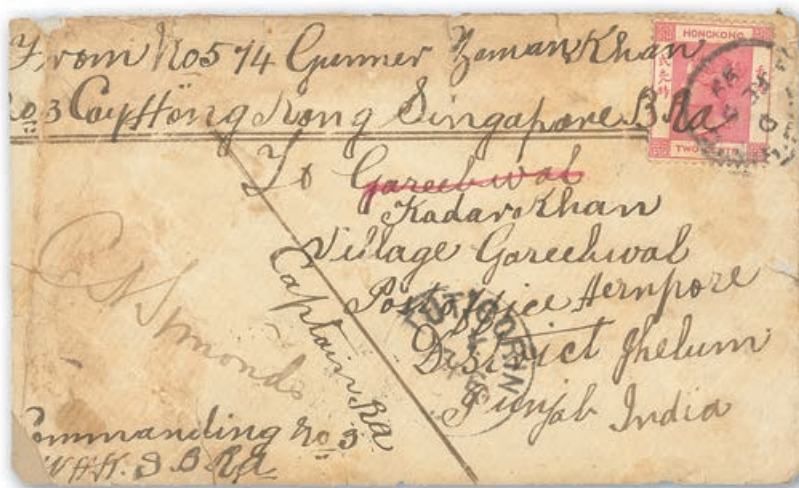 From No 574 Gunner Zaman Khan
No 3 Coy Höng Kong Singapore B Ra
HONGKONG
TWO CENTS
To Gareebwal
Kadar Khan
Village Gareebwal
Post office Hernpore
District Jhelum
Punjab India
TUTICORIN
Symonds
Captain Ra
Commanding No 3
S B Ra